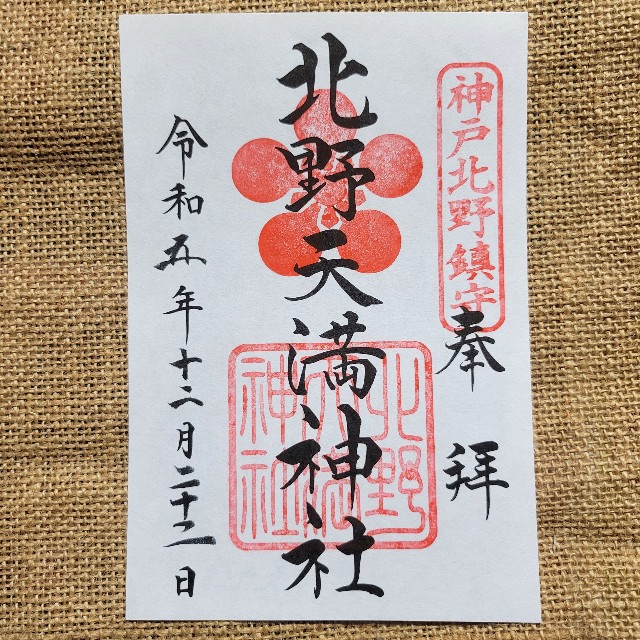 神戸北野鎮守
奉拝
北野天満神社
北野天満神社
令和五年十二月二十二日